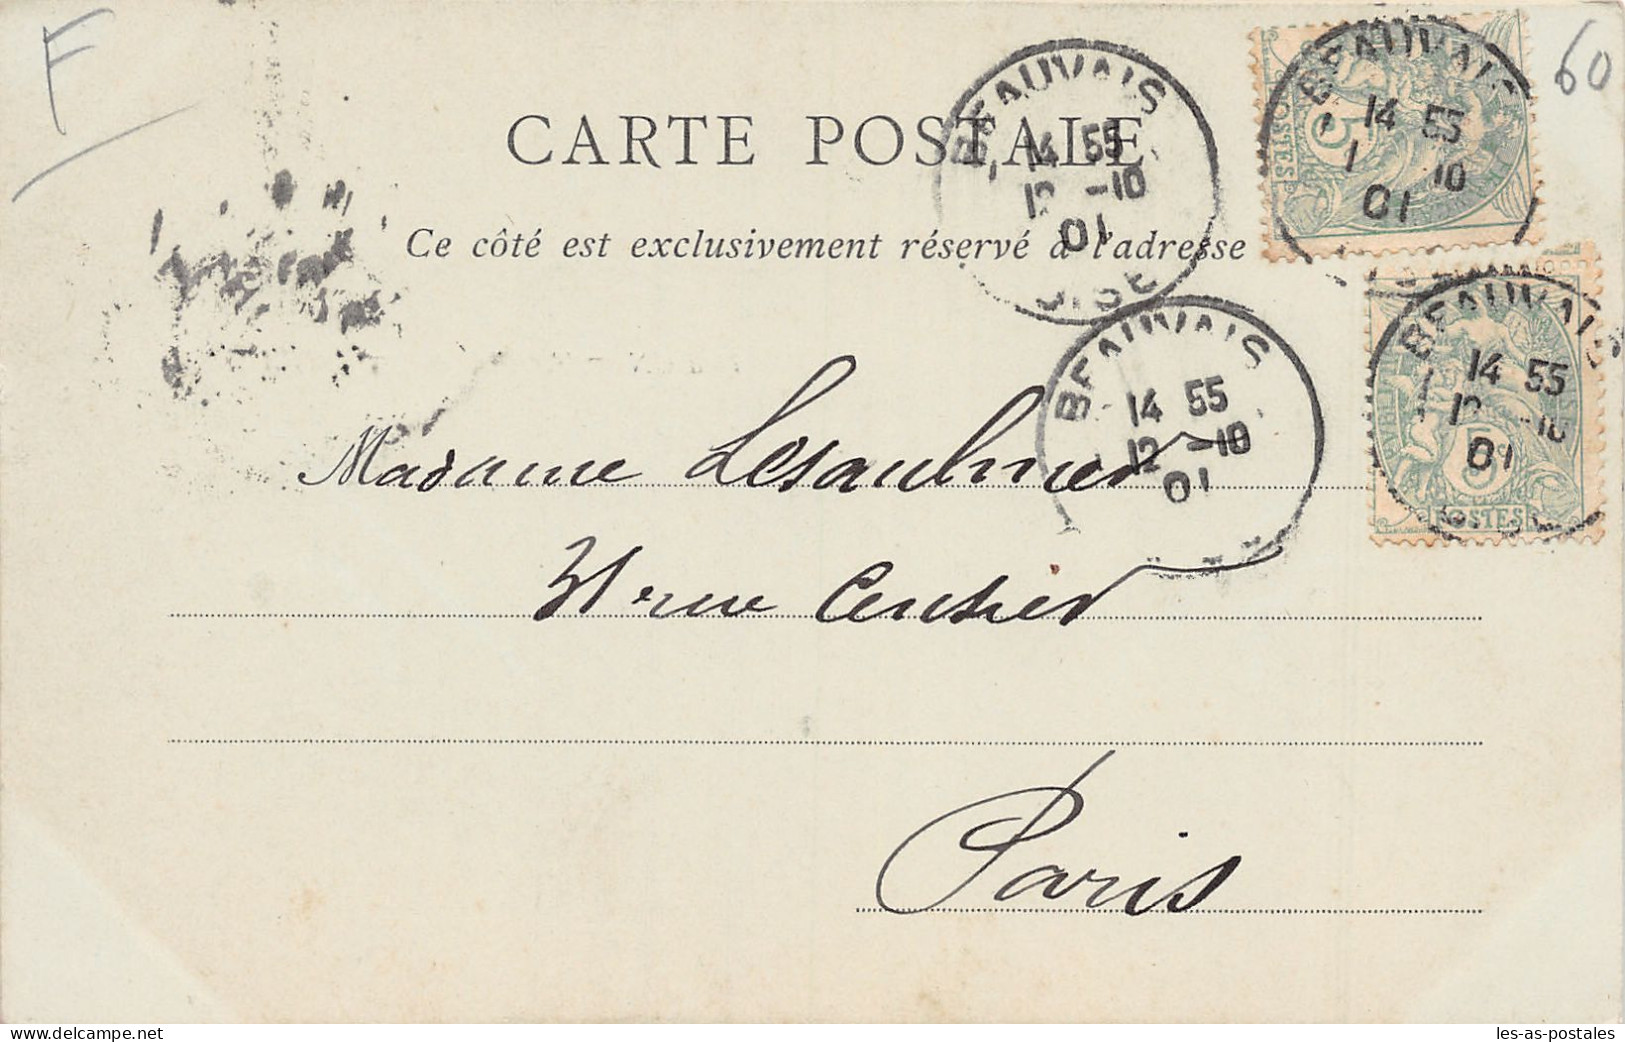 F
60
CARTE POSTALE
Ce côté est exclusivement réservé à l'adresse
BEAUVAIS
14 55
12 -10
01
OISE
BEAUVAIS
14 55
1 10
01
POSTES
5
BEAUVAIS
14 55
12 -10
01
BEAUVAIS
14 55
12 -10
01
5
POSTES
Madame Lesaulnier
31 rue Censier
Paris
www.delcampe.net
les-as-postales